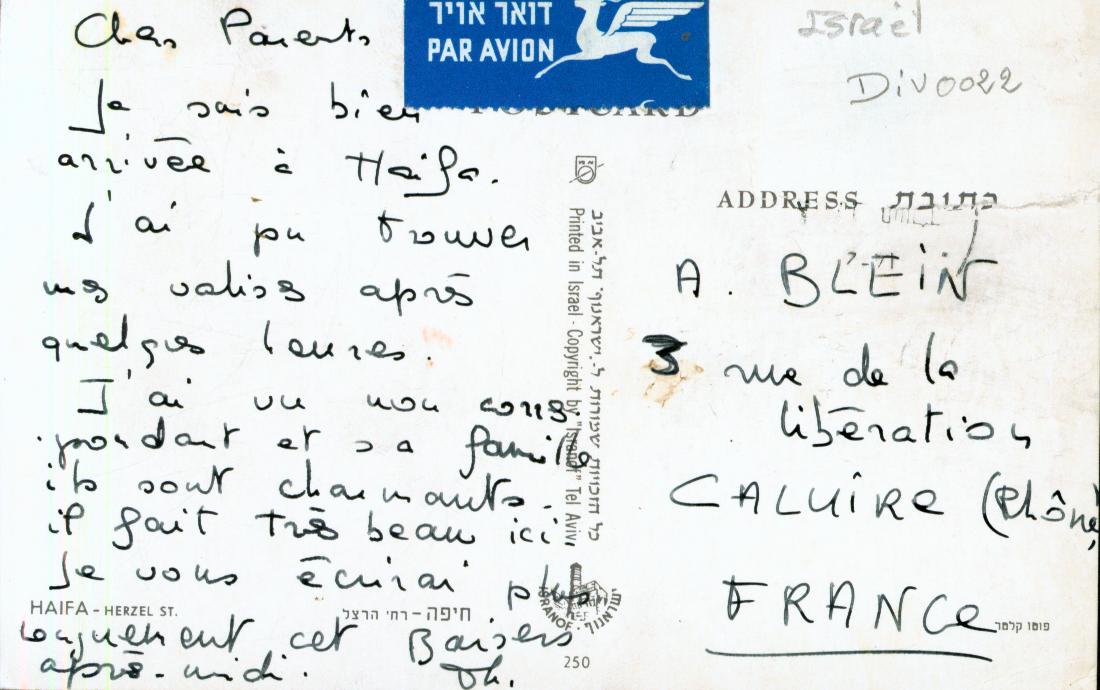 Chers Parents
Je suis bien
arrivée à Haifa.
J'ai pu trouver
mes valises après
quelques heures.
J'ai vu mon corres
pondant et sa famille
ils sont charmants.
il fait très beau ici,
Je vous écrirai plus
longuement cet
après-midi.
Baisers
Th.
HAIFA - HERZEL ST.
חיפה - רחי הרצל
דואר אויר
PAR AVION
POSTCARD
Printed in Israel · Copyright by "Isranof" Tel Aviv
כל הזכויות שמורות ל.ישראנוף תל-אביב
ISRANOF · ישראנוף
250
Israël
Div0022
ADDRESS כתובת
A. BLEIN
3 rue de la
libération
CALUIRE (Rhône)
FRANCE
פוטו קלטר